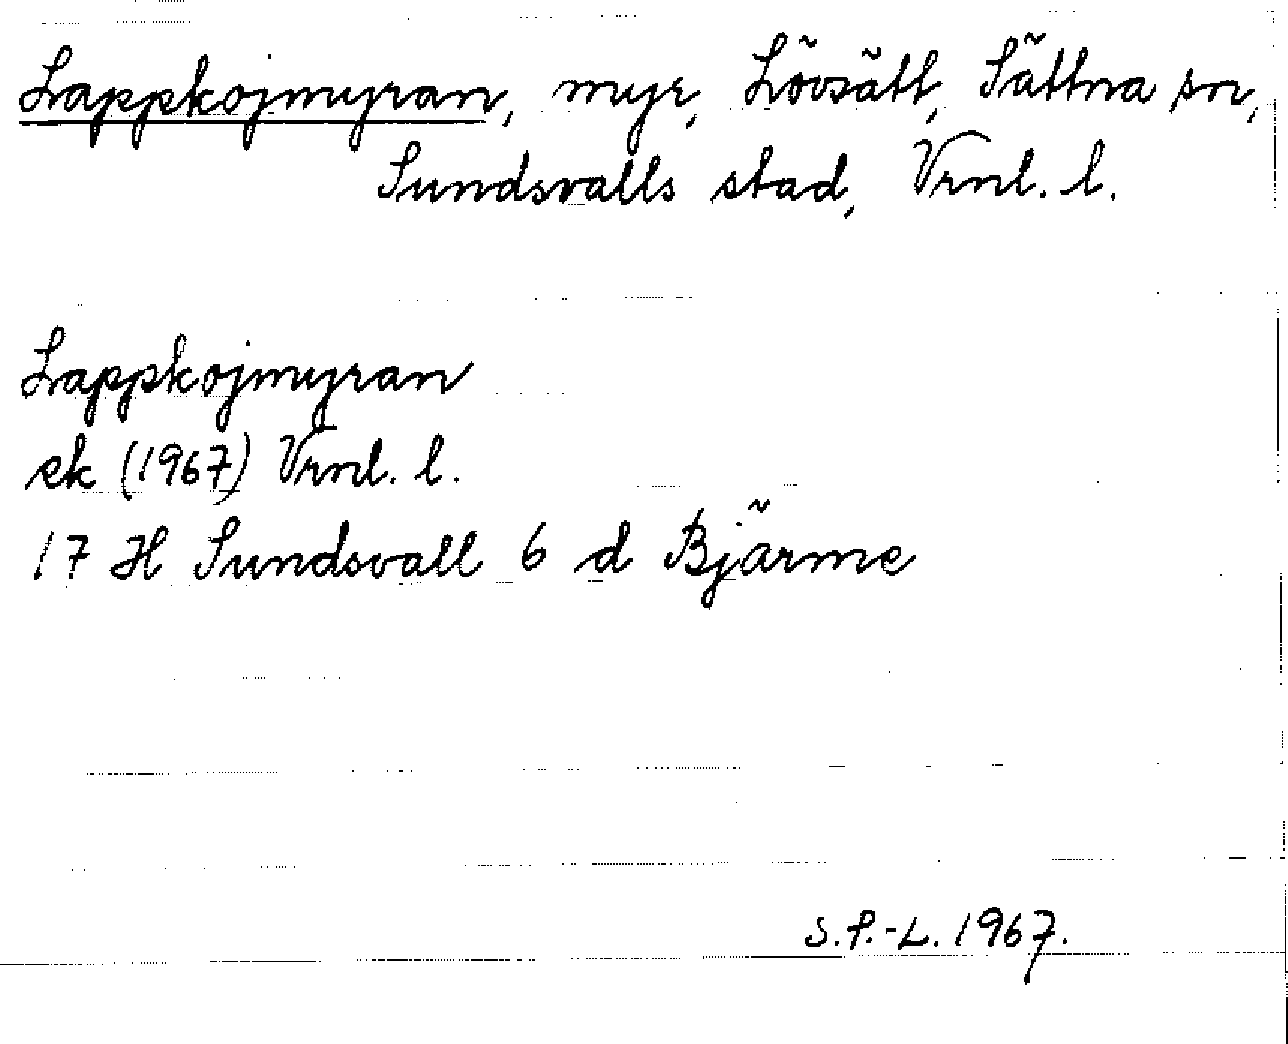 Lappkojmyran, myr, Lövsätt, Sättna sn,
Sundsvalls stad, Vrnl. l.
Lappkojmyran
ek (1967) Vrnl. l.
17 H Sundsvall 6 d Bjärme
S.P.-L. 1967.